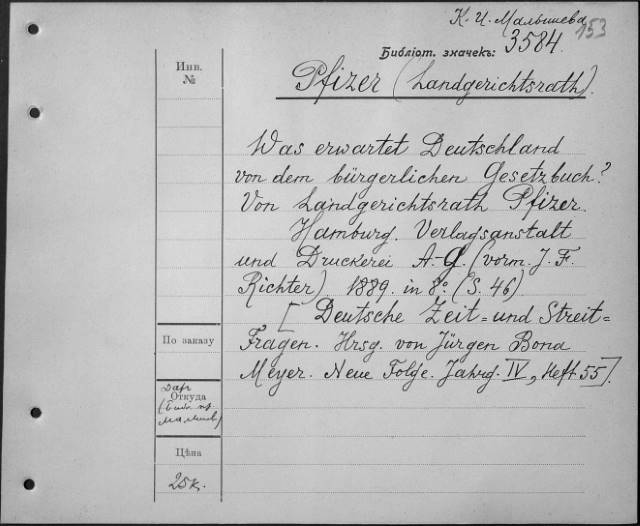 К. И. Малышева 153
Библіот. значекъ: 3584.
Инв.
№
Pfizer (Landgerichtsrath).
Was erwartet Deutschland
von dem bürgerlichen Gesetzbuch?
Von Landgerichtsrath Pfizer.
Hamburg. Verlagsanstalt
und Druckerei A.-G. (vorm. J. F.
Richter) 1889. in 8º. (S. 46)
[Deutsche Zeit= und Streit=
Fragen. Hrsg. von Jürgen Bona
Meyer. Neue Folge. Jahrg. IV, Heft 55].
По заказу
Даръ
Откуда
Цѣна
25к.